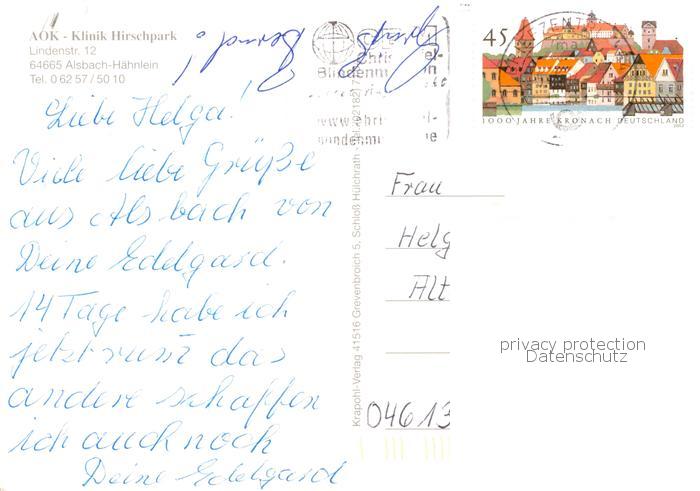 AOK - Klinik Hirschpark
Lindenstr. 12
64665 Alsbach-Hähnlein
Tel. 0 62 57 / 50 10
Bernd!
Liebe Helga!
Viele liebe Grüße
aus Alsbach von
Deine Edelgard.
14 Tage habe ich
jetzt rum das
andere schaffen
ich auch noch
Deine Edelgard
Krapohl-Verlag 41516 Grevenbroich 5, Schloß Hülchrath
45
1000 JAHRE KRONACH DEUTSCHLAND
2002
Frau
Helg
Alt
privacy protection
Datenschutz
04613